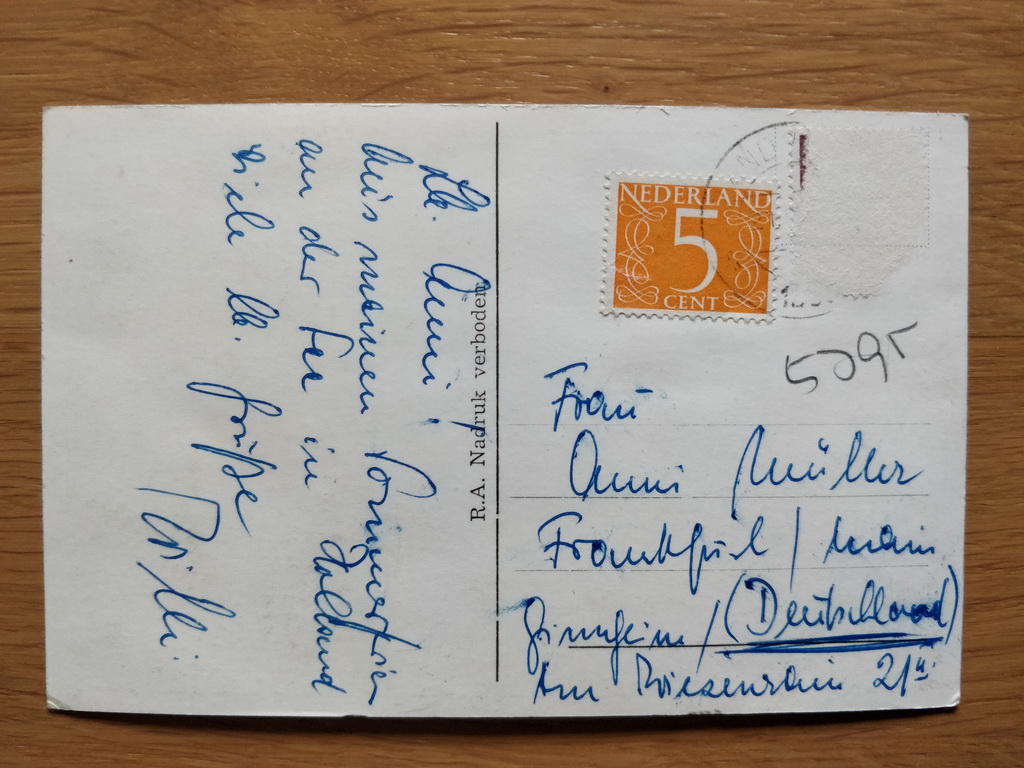 Lb. Anni!
Aus meinen Sommerferien
an der See in Holland
viele lb. Grüße
Willi
R.A. Nadruk verboden
NEDERLAND
5
CENT
5095
Frau
Anni Müller
Frankfurt / Main
Ginnheim / (Deutschland)
Am Wiesenrain 21